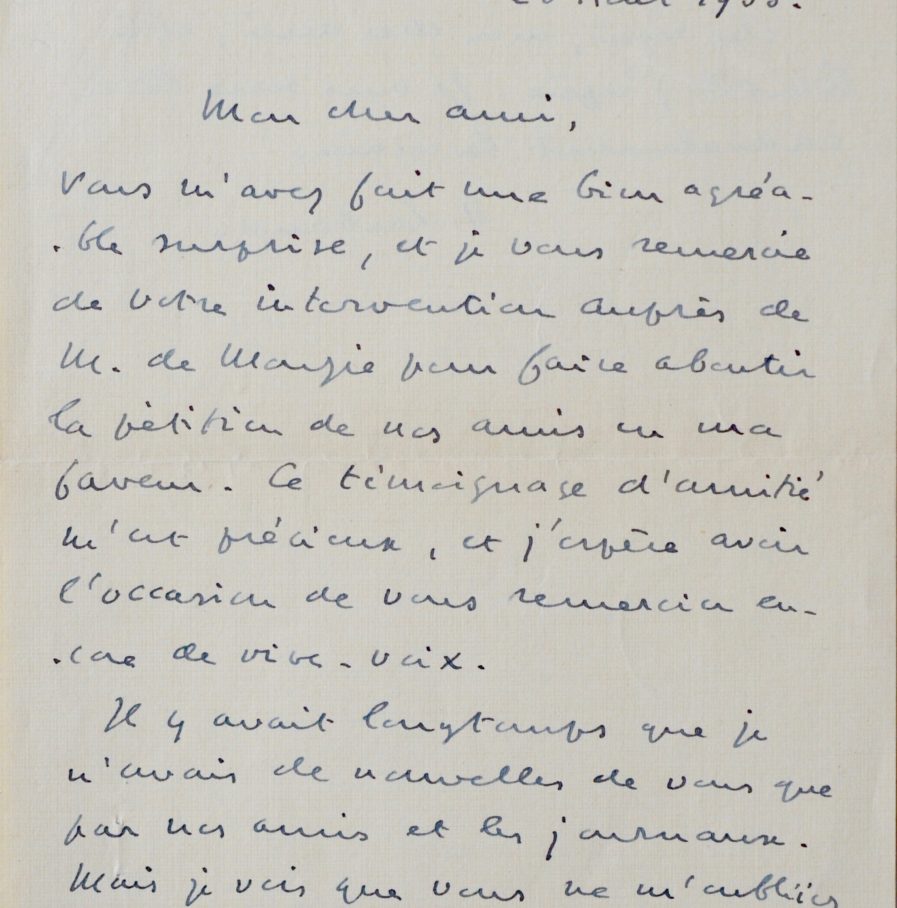 Mon cher ami,
Vous m'avez fait une bien agréa-
-ble surprise, et je vous remercie
de votre intervention auprès de
M. de Monzie pour faire aboutir
la pétition de nos amis en ma
faveur. Ce témoignage d'amitié
m'est précieux, et j'espère avoir
l'occasion de vous remercier en-
-core de vive-voix.
Il y avait longtemps que je
n'avais de nouvelles de vous que
par nos amis et les journaux.
Mais je vois que vous ne m'oubliiez